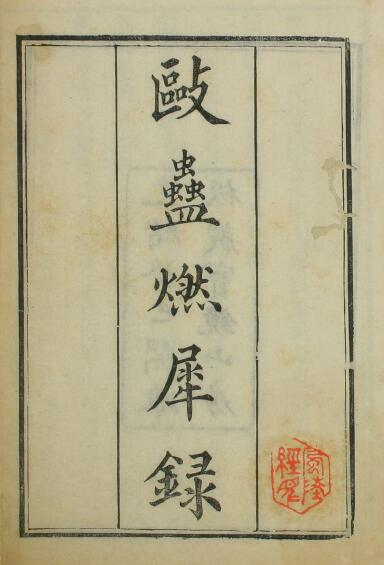 毆蠱燃犀録